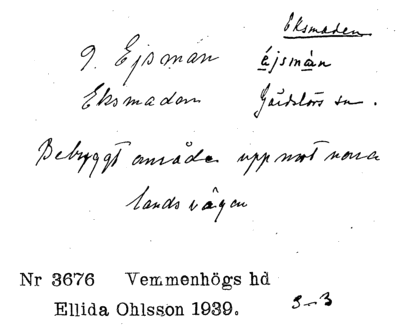 Eksmaden
9. Ejsman éjsmàn
Eksmaden Gärdslövs sn.
Bebyggt område upp mot norra
landsvägen
Nr 3676 Vemmenhögs hd
Ellida Ohlsson 1939. 3-3